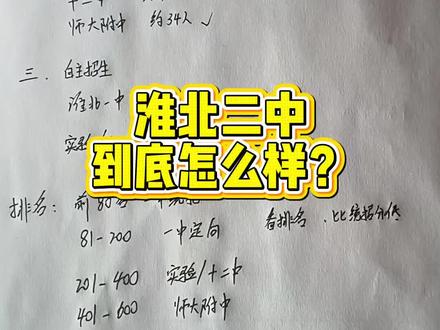 师大附中 约34人 ✓
三. 自主招生
淮北一中
实验/
淮北二中
到底怎么样?
排名: 前80
81-200 一中定向 看排名.比统招分低
201-400 实验/十二中
401-600 师大附中